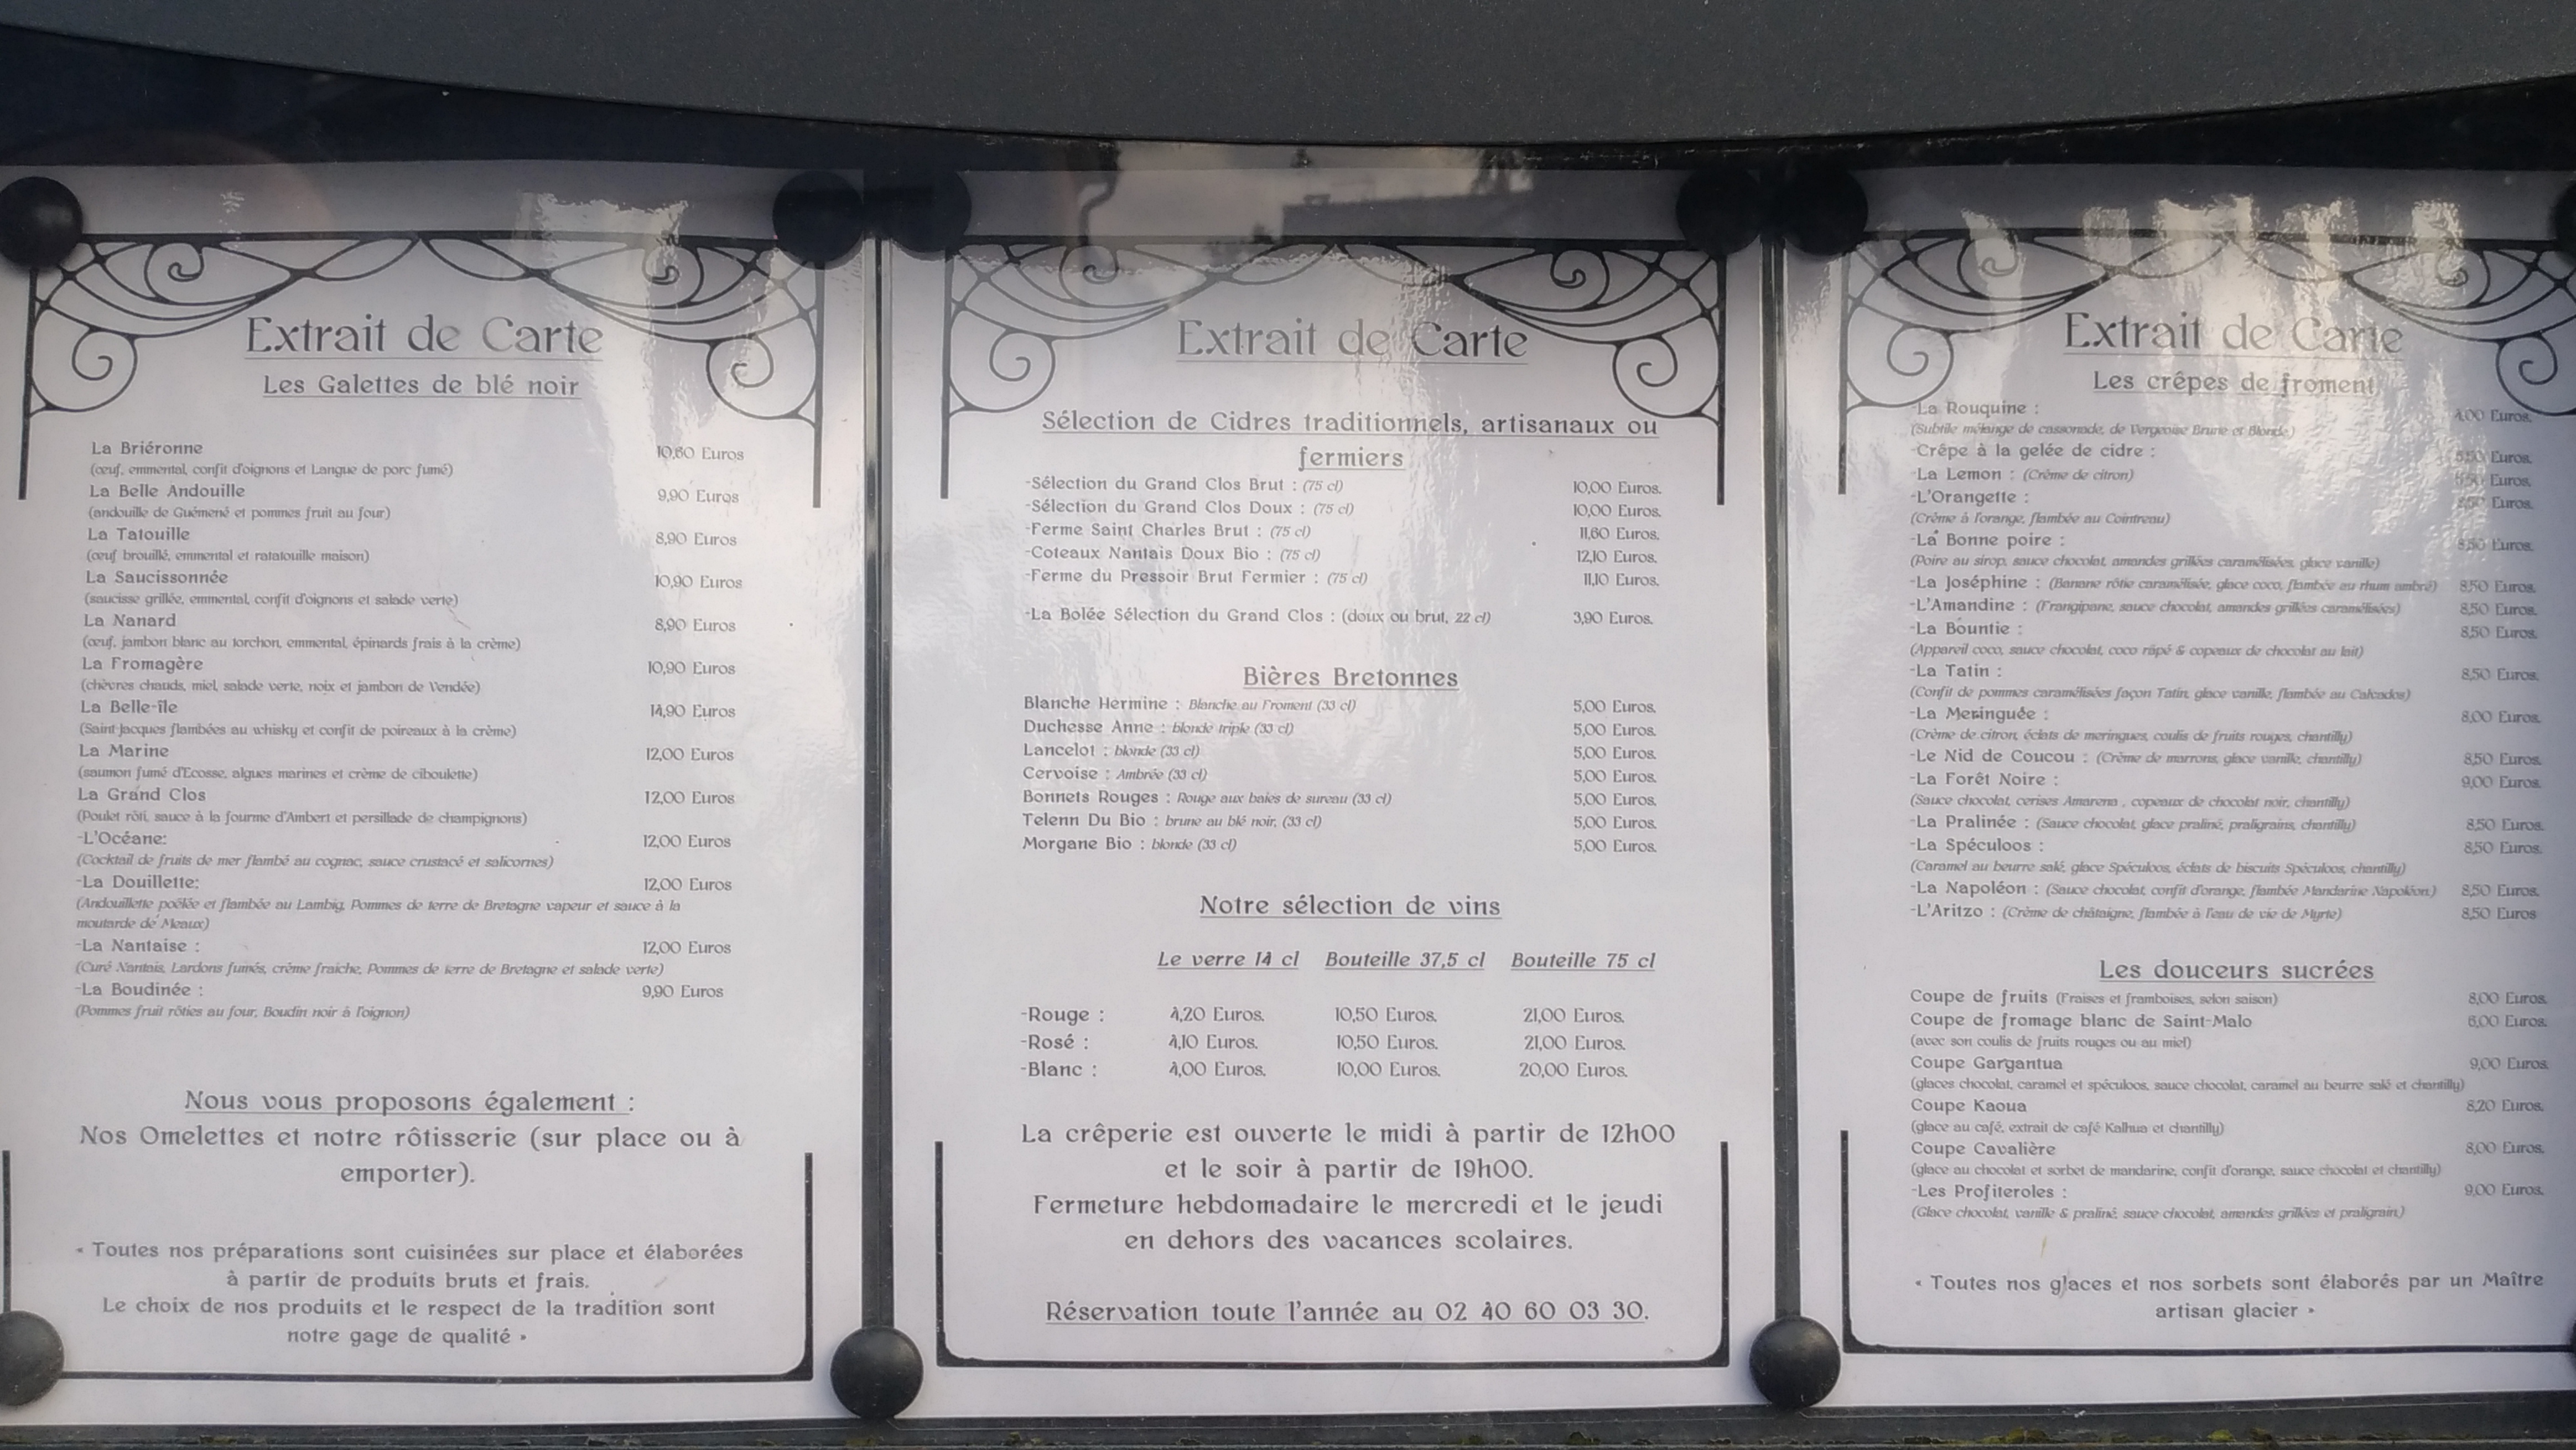 Extrait de Carte
Les Galettes de blé noir
La Briéronne 10,60 Euros
(œuf, emmental, confit d'oignons et Langue de porc fumé)
La Belle Andouille 9,90 Euros
(andouille de Guémené et pommes fruit au four)
La Tatouille 8,90 Euros
(œuf brouillé, emmental et ratatouille maison)
La Saucissonnée 10,90 Euros
(saucisse grillée, emmental, confit d'oignons et salade verte)
La Nanard 8,90 Euros
(œuf, jambon blanc au torchon, emmental, épinards frais à la crème)
La Fromagère 10,90 Euros
(chèvres chauds, miel, salade verte, noix et jambon de Vendée)
La Belle-île 14,90 Euros
(Saint-Jacques flambées au whisky et confit de poireaux à la crème)
La Marine 12,00 Euros
(saumon fumé d'Ecosse, algues marines et crème de ciboulette)
La Grand Clos 12,00 Euros
(Poulet rôti, sauce à la fourme d'Ambert et persillade de champignons)
-L'Océane: 12,00 Euros
(Cocktail de fruits de mer flambé au cognac, sauce crustacé et salicornes)
-La Douillette: 12,00 Euros
(Andouillette poêlée et flambée au Lambig, Pommes de terre de Bretagne vapeur et sauce à la
moutarde de Meaux)
-La Nantaise : 12,00 Euros
(Curé Nantais, Lardons fumés, crème fraiche, Pommes de terre de Bretagne et salade verte)
-La Boudinée : 9,90 Euros
(Pommes fruit rôties au four, Boudin noir à l'oignon)
Nous vous proposons également :
Nos Omelettes et notre rôtisserie (sur place ou à
emporter).
« Toutes nos préparations sont cuisinées sur place et élaborées
à partir de produits bruts et frais.
Le choix de nos produits et le respect de la tradition sont
notre gage de qualité »
Extrait de Carte
Sélection de Cidres traditionnels, artisanaux ou
fermiers
-Sélection du Grand Clos Brut : (75 cl) 10,00 Euros.
-Sélection du Grand Clos Doux : (75 cl) 10,00 Euros.
-Ferme Saint Charles Brut : (75 cl) 11,60 Euros.
-Coteaux Nantais Doux Bio : (75 cl) 12,10 Euros.
-Ferme du Pressoir Brut Fermier : (75 cl) 11,10 Euros.
-La Bolée Sélection du Grand Clos : (doux ou brut, 22 cl) 3,90 Euros.
Bières Bretonnes
Blanche Hermine : Blanche au Froment (33 cl) 5,00 Euros.
Duchesse Anne : blonde triple (33 cl) 5,00 Euros.
Lancelot : blonde (33 cl) 5,00 Euros.
Cervoise : Ambrée (33 cl) 5,00 Euros.
Bonnets Rouges : Rouge aux baies de sureau (33 cl) 5,00 Euros.
Telenn Du Bio : brune au blé noir, (33 cl) 5,00 Euros.
Morgane Bio : blonde (33 cl) 5,00 Euros.
Notre sélection de vins
Le verre 14 cl Bouteille 37,5 cl Bouteille 75 cl
-Rouge : 4,20 Euros. 10,50 Euros. 21,00 Euros.
-Rosé : 4,10 Euros. 10,50 Euros. 21,00 Euros.
-Blanc : 4,00 Euros. 10,00 Euros. 20,00 Euros.
La crêperie est ouverte le midi à partir de 12h00
et le soir à partir de 19h00.
Fermeture hebdomadaire le mercredi et le jeudi
en dehors des vacances scolaires.
Réservation toute l'année au 02 40 60 03 30.
Extrait de Carte
Les crêpes de froment
-La Rouquine : 4,00 Euros.
(Subtile mélange de cassonade, de Vergeoise Brune et Blonde)
-Crêpe à la gelée de cidre : Euros.
-La Lemon : (Crème de citron) Euros.
-L'Orangette : Euros.
(Crème à l'orange, flambée au Cointreau)
-La Bonne poire : 8,50 Euros.
(Poire au sirop, sauce chocolat, amandes grillées caramélisées, glace vanille)
-La Joséphine : (Banane rôtie caramélisée, glace coco, flambée au rhum ambré) 8,50 Euros.
-L'Amandine : (Frangipane, sauce chocolat, amandes grillées caramélisées) 8,50 Euros.
-La Bountie : 8,50 Euros.
(Appareil coco, sauce chocolat, coco râpé & copeaux de chocolat au lait)
-La Tatin : 8,50 Euros.
(Confit de pommes caramélisées façon Tatin, glace vanille, flambée au Calvados)
-La Meringuée : 8,00 Euros.
(Crème de citron, éclats de meringues, coulis de fruits rouges, chantilly)
-Le Nid de Coucou : (Crème de marrons, glace vanille, chantilly) 8,50 Euros.
-La Forêt Noire : 9,00 Euros.
(Sauce chocolat, cerises Amarena , copeaux de chocolat noir, chantilly)
-La Pralinée : (Sauce chocolat, glace praliné, praligrains, chantilly) 8,50 Euros.
-La Spéculoos : 8,50 Euros.
(Caramel au beurre salé, glace Spéculoos, éclats de biscuits Spéculoos, chantilly)
-La Napoléon : (Sauce chocolat, confit d'orange, flambée Mandarine Napoléon) 8,50 Euros.
-L'Aritzo : (Crème de châtaigne, flambée à l'eau de vie de Myrte) 8,50 Euros
Les douceurs sucrées
Coupe de fruits (Fraises et framboises, selon saison) 8,00 Euros.
Coupe de fromage blanc de Saint-Malo 6,00 Euros.
(avec son coulis de fruits rouges ou au miel)
Coupe Gargantua 9,00 Euros.
(glaces chocolat, caramel et spéculoos, sauce chocolat, caramel au beurre salé et chantilly)
Coupe Kaoua 8,20 Euros.
(glace au café, extrait de café Kalhua et chantilly)
Coupe Cavalière 8,00 Euros.
(glace au chocolat et sorbet de mandarine, confit d'orange, sauce chocolat et chantilly)
-Les Profiteroles : 9,00 Euros.
(Glace chocolat, vanille & praliné, sauce chocolat, amandes grillées et praligrain)
« Toutes nos glaces et nos sorbets sont élaborés par un Maître
artisan glacier »